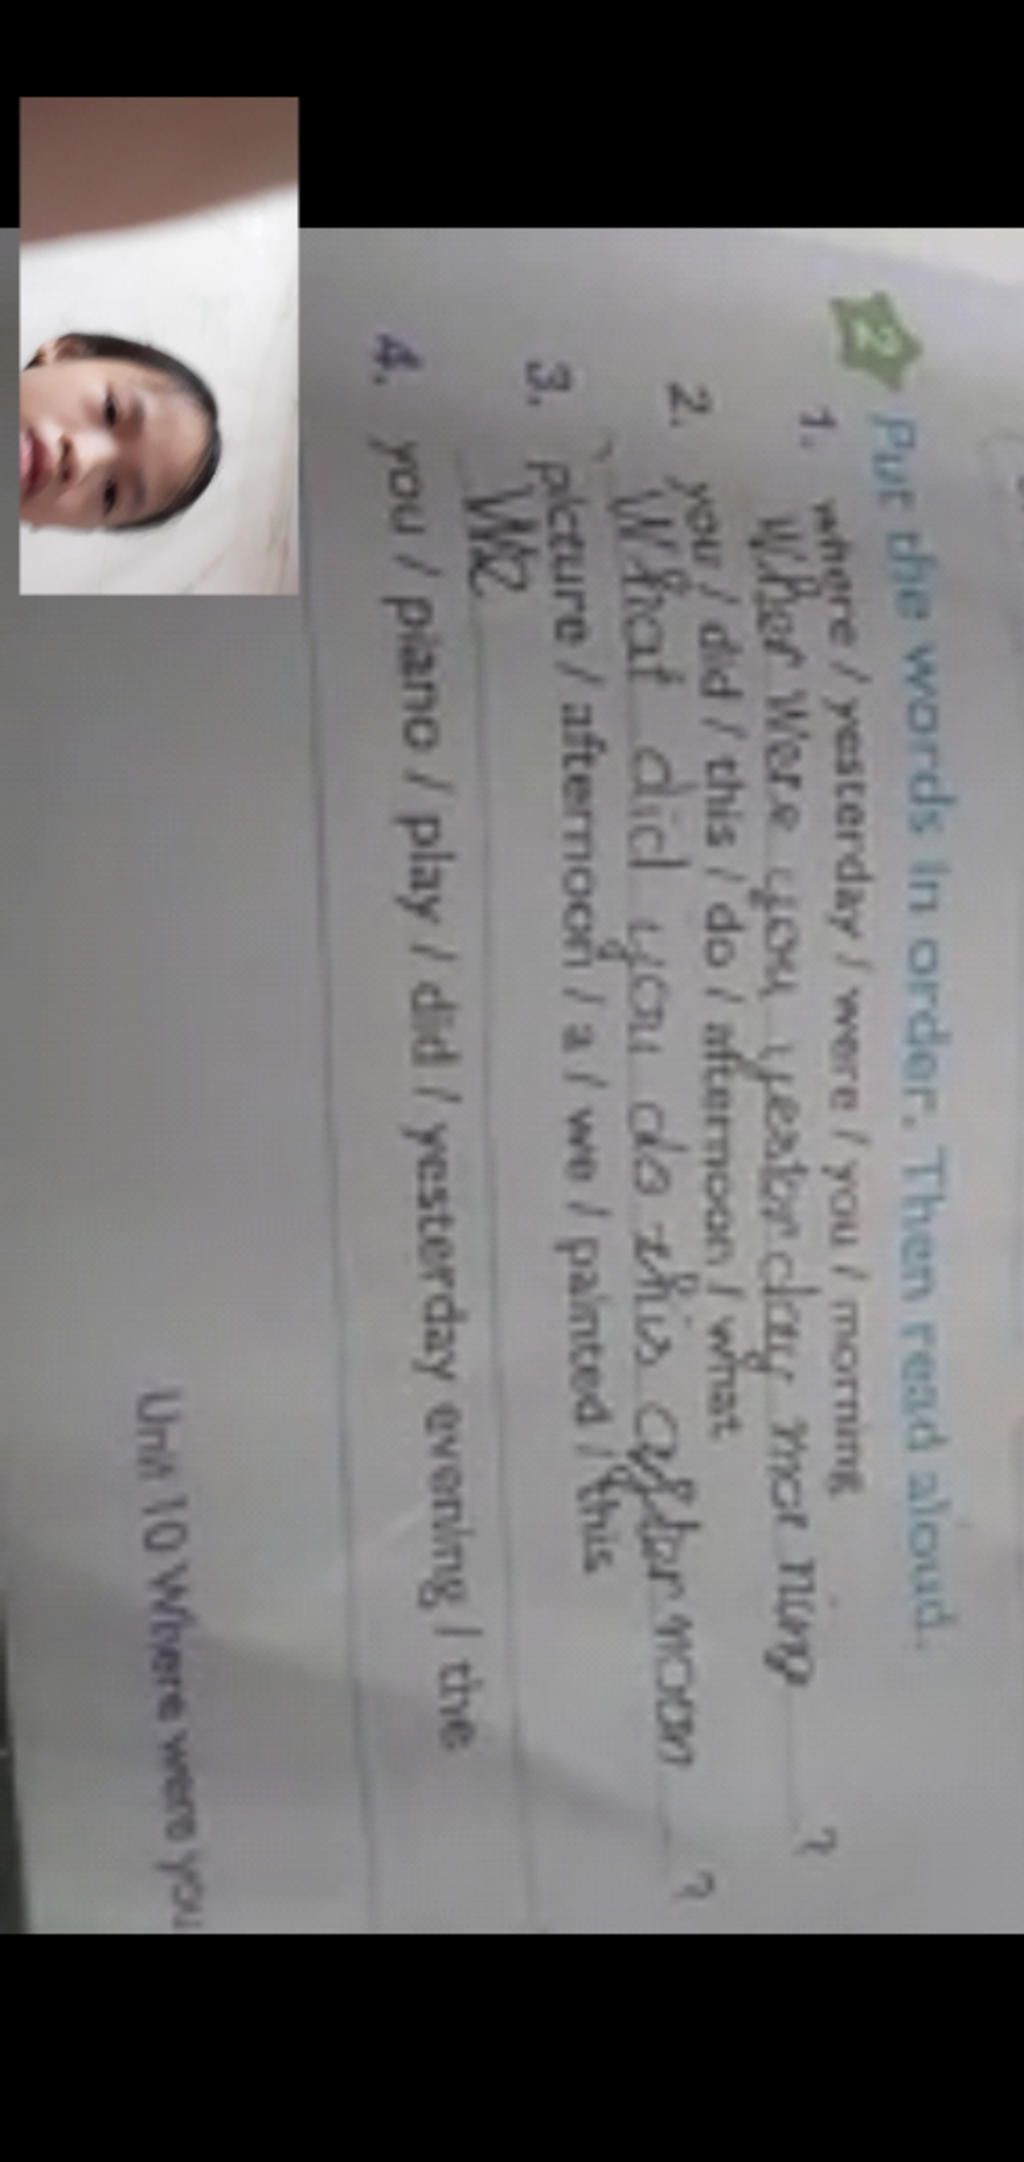 2 Put the words in order. Then read aloud.
1. where / yesterday / were / you / morning
Wher Were you yesterday mor ning ?
2. you / did / this / do / afternoon / what
What did you do this after noon ?
3. picture / afternoon / a / we / painted / this
We
4. you / piano / play / did / yesterday evening / the
Unit 10 Where were you